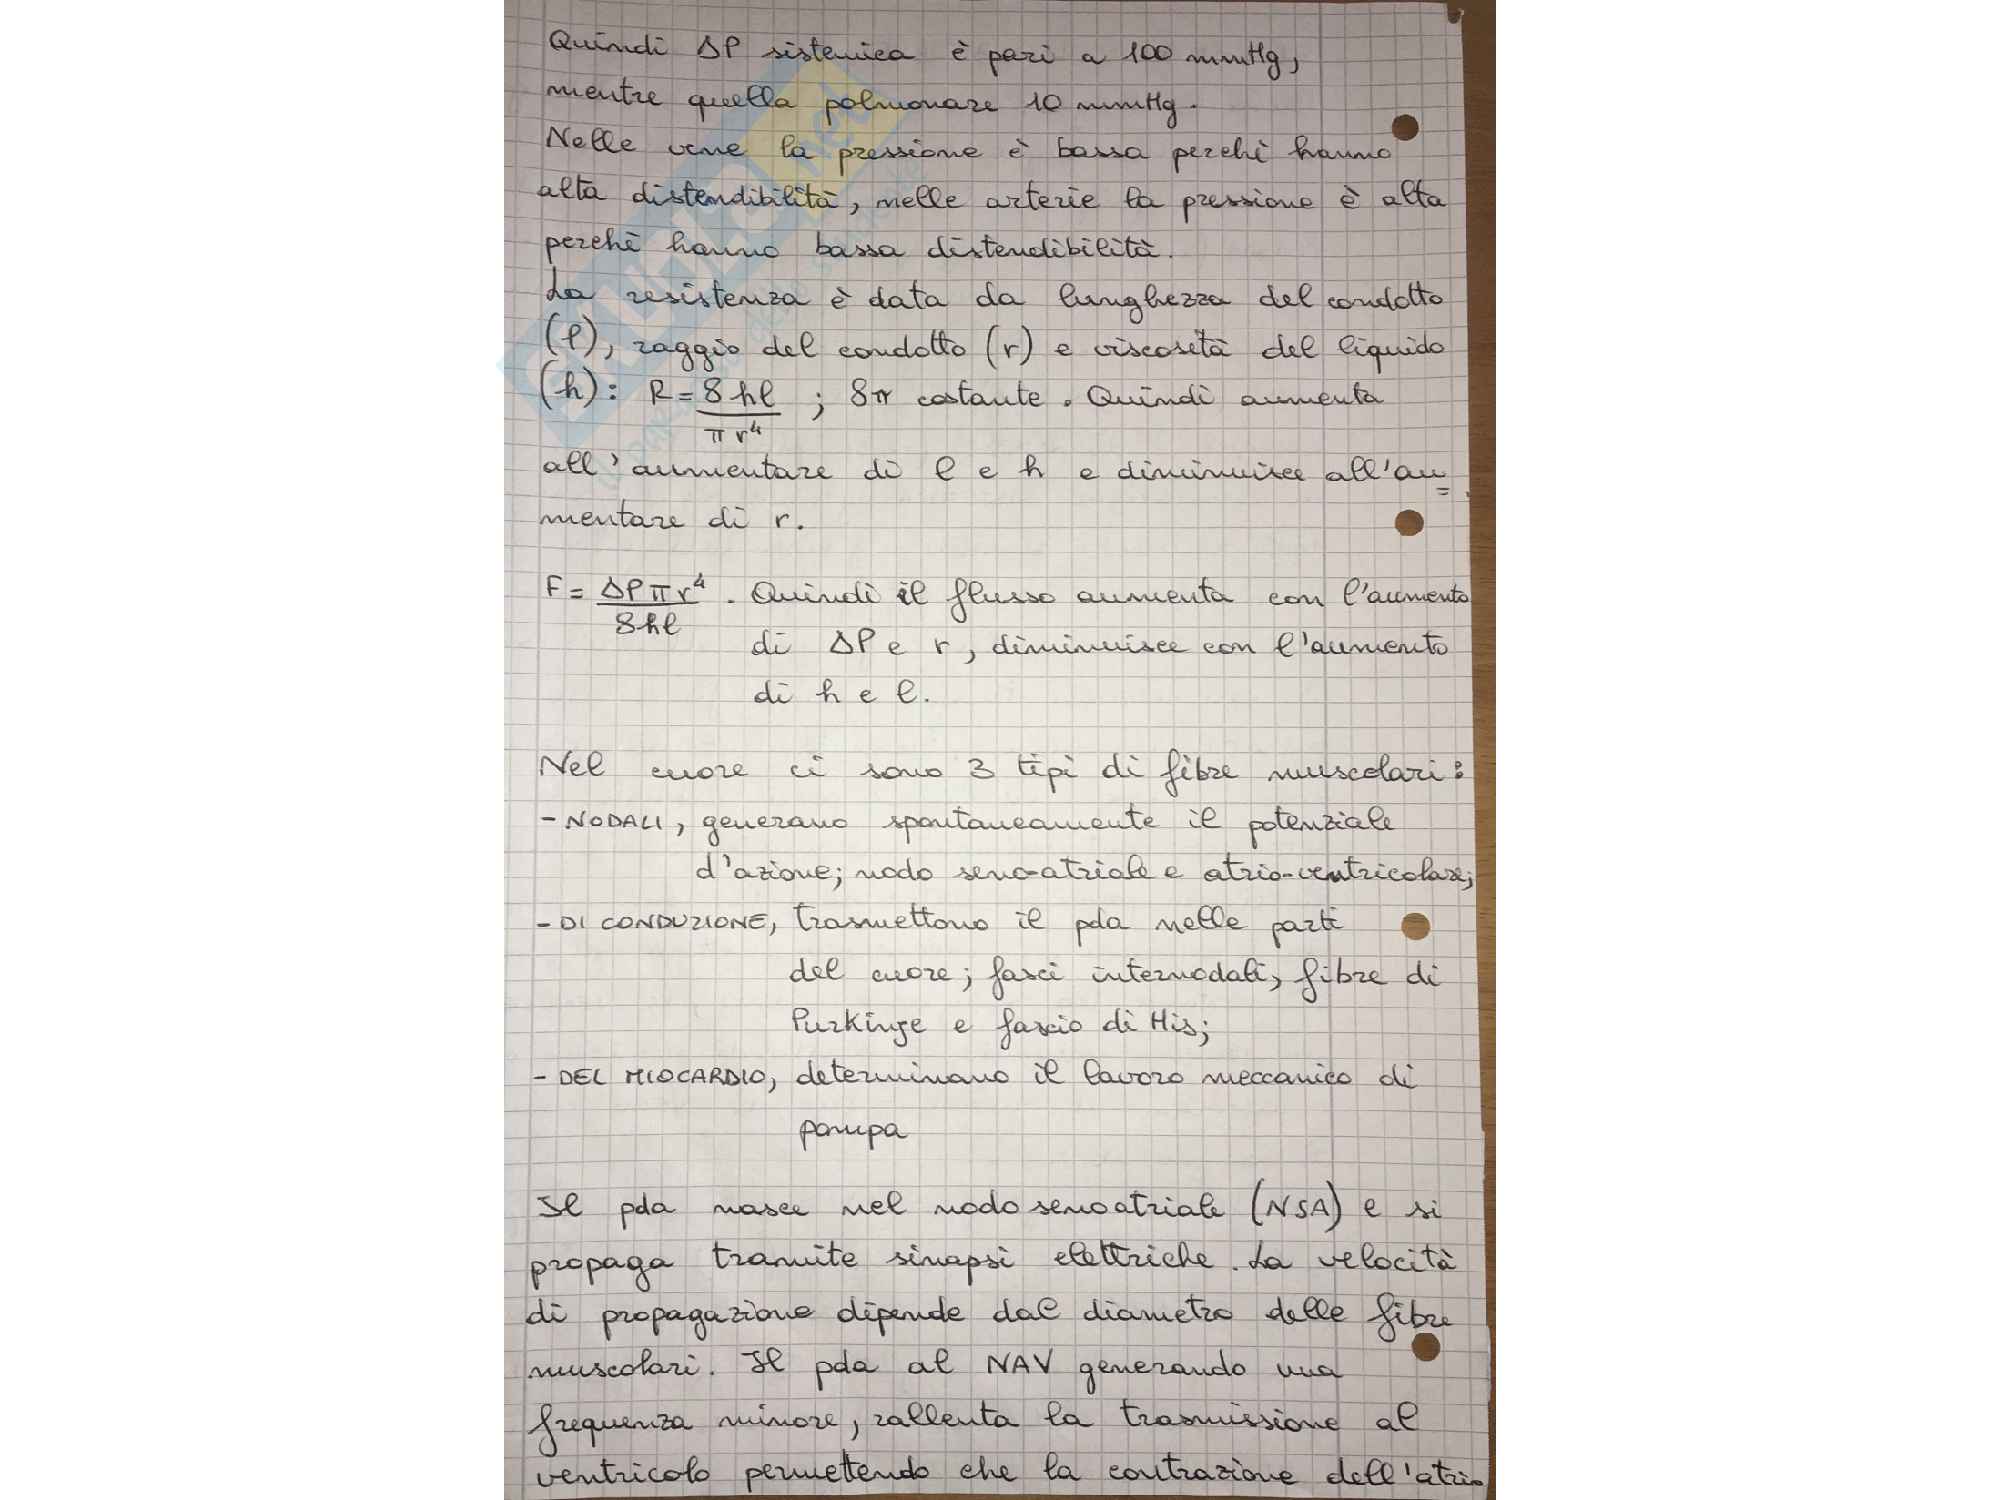 Quindi ΔP sistemica è pari a 100 mmHg,
mentre quella polmonare 10 mmHg.
Nelle vene la pressione è bassa perchè hanno
alta distendibilità, nelle arterie la pressione è alta
perchè hanno bassa distendibilità.
La resistenza è data da lunghezza del condotto
(l), raggio del condotto (r) e viscosità del liquido
(h): R = 8hl / πr⁴ ; 8π costante. Quindi aumenta
all'aumentare di l e h e diminuisce all'au=
mentare di r.
F = ΔPπr⁴ / 8hl . Quindi il flusso aumenta con l'aumento
di ΔP e r, diminuisce con l'aumento
di h e l.
Nel cuore ci sono 3 tipi di fibre muscolari:
- NODALI, generano spontaneamente il potenziale
d'azione; nodo seno-atriale e atrio-ventricolare;
- DI CONDUZIONE, trasmettono il pda nelle parti
del cuore; fasci internodali, fibre di
Purkinje e fascio di His;
- DEL MIOCARDIO, determinano il lavoro meccanico di
pompa
Il pda nasce nel nodo senoatriale (NSA) e si
propaga tramite sinapsi elettriche. La velocità
di propagazione dipende dal diametro delle fibre
muscolari. Il pda al NAV generando una
frequenza minore, rallenta la trasmissione al
ventricolo permettendo che la contrazione dell'atrio